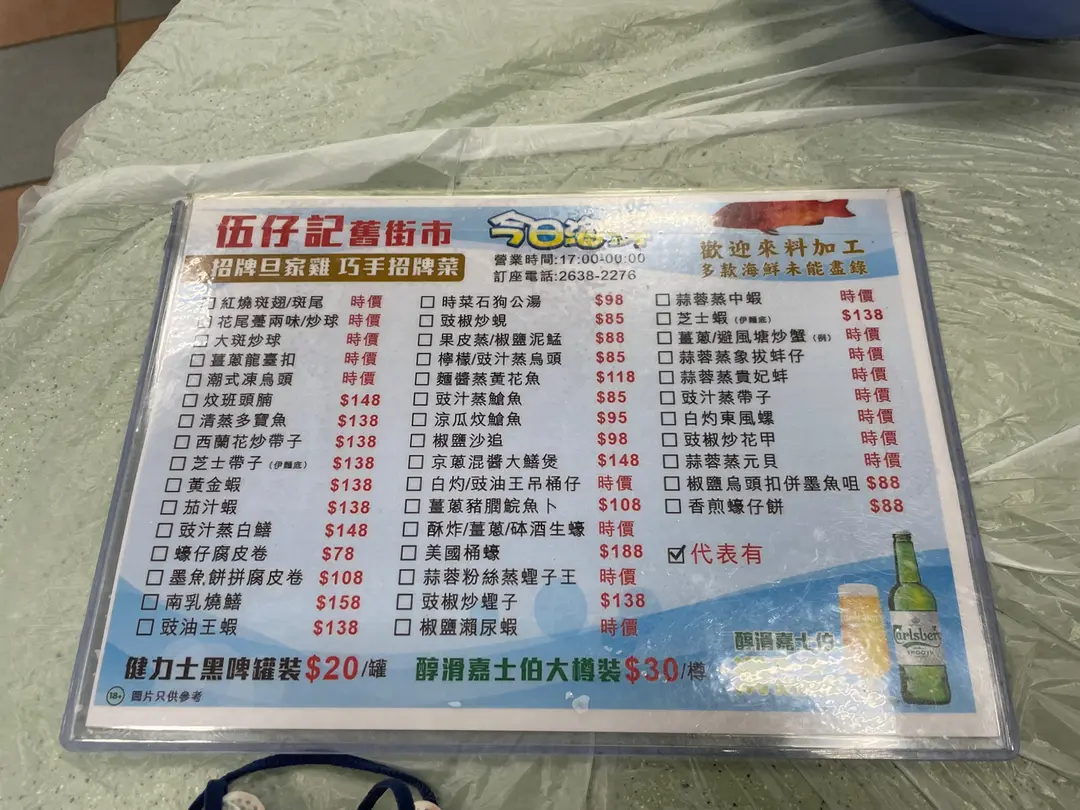 伍仔記舊街市
招牌旦家雞 巧手招牌菜
今日海鮮
營業時間:17:00-00:00
訂座電話:2638-2276
歡迎來料加工
多款海鮮未能盡錄
紅燒斑翅/斑尾 時價
花尾躉兩味/炒球 時價
大斑炒球 時價
薑蔥龍躉扣 時價
潮式凍烏頭 時價
炆班頭腩 $148
清蒸多寶魚 $138
西蘭花炒帶子 $138
芝士帶子(伊麵底) $138
黃金蝦 $138
茄汁蝦 $138
豉汁蒸白鱔 $148
蠔仔腐皮卷 $78
墨魚餅拼腐皮卷 $108
南乳燒鱔 $158
豉油王蝦 $138
時菜石狗公湯 $98
豉椒炒蜆 $85
果皮蒸/椒鹽泥鯭 $88
檸檬/豉汁蒸烏頭 $85
麵醬蒸黃花魚 $118
豉汁蒸鱠魚 $85
涼瓜炆鱠魚 $95
椒鹽沙追 $98
京蔥混醬大鱔煲 $148
白灼/豉油王吊桶仔 時價
薑蔥豬膶鯇魚卜 $108
酥炸/薑蔥/砵酒生蠔 時價
美國桶蠔 $188
蒜蓉粉絲蒸蟶子王 時價
豉椒炒蟶子 $138
椒鹽瀨尿蝦 時價
蒜蓉蒸中蝦 時價
芝士蝦(伊麵底) $138
薑蔥/避風塘炒蟹(例) 時價
蒜蓉蒸象拔蚌仔 時價
蒜蓉蒸貴妃蚌 時價
豉汁蒸帶子 時價
白灼東風螺 時價
豉椒炒花甲 時價
蒜蓉蒸元貝 時價
椒鹽烏頭扣併墨魚咀 $88
香煎蠔仔餅 $88
代表有
醇滑嘉士伯
Carlsberg
SMOOTH
健力士黑啤罐裝$20/罐
醇滑嘉士伯大樽裝$30/樽
18+ 圖片只供參考